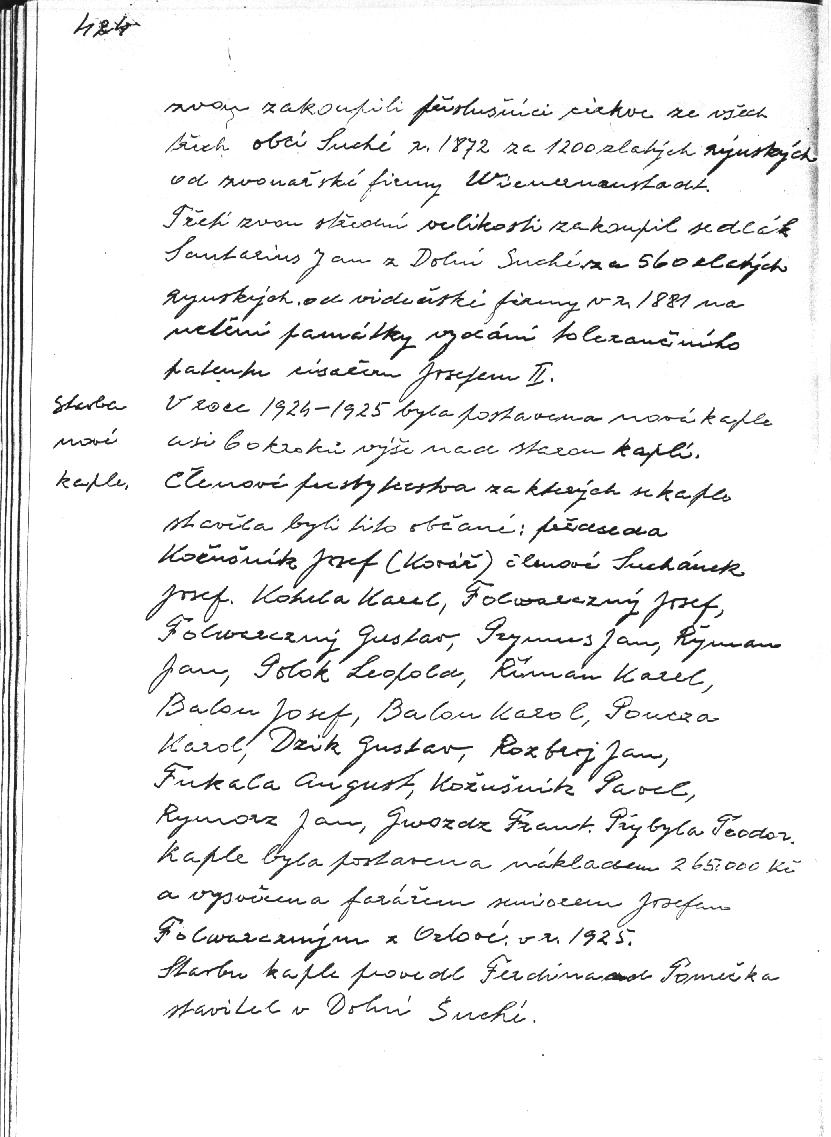 424
zvon zakoupili příslušníci církve ze všech
třech obcí Suché r. 1872 za 1200 zlatých rýnských
od zvonařské firmy Wienerneustadt.
Třetí zvon střední velikosti zakoupil sedlák
Santarius Jan z Dolní Suché za 560 zlatých
rýnských. od vídeňské firmy v r. 1881 na
uctění památky vydání tolerančního
patentu císařem Josefem II.
Stavba
nové
kaple.
V roce 1924-1925 byla postavena nová kaple
asi 6 okroků výše nad starou kaplí.
Členové presbyterstva za kterých se kaple
stavěla byli tito občané: předseda
Kožušník Josef (Kovář) členové Suchánek
Josef. Kohela Karel, Folwarczný Josef,
Folwarczný Gustav, Prymus Jan, Rýman
Jan, Polok Leopold, Říman Karel,
Balon Josef, Balon Karol,
Karol, Dzik Gustav, Rozbroj Jan,
Fukala August, Kožušník Pavel,
Rymorz Jan, Gwozdz Frant. Przybyla Teodor.
Kaple byla postavena nákladem 265.000 Kč
a vysvěcena farářem seniorem Josefem
Folwarczným z Orlové. v r. 1925.
Stavbu kaple provedl Ferdinand Pomečka
stavitel v Dolní Suché.